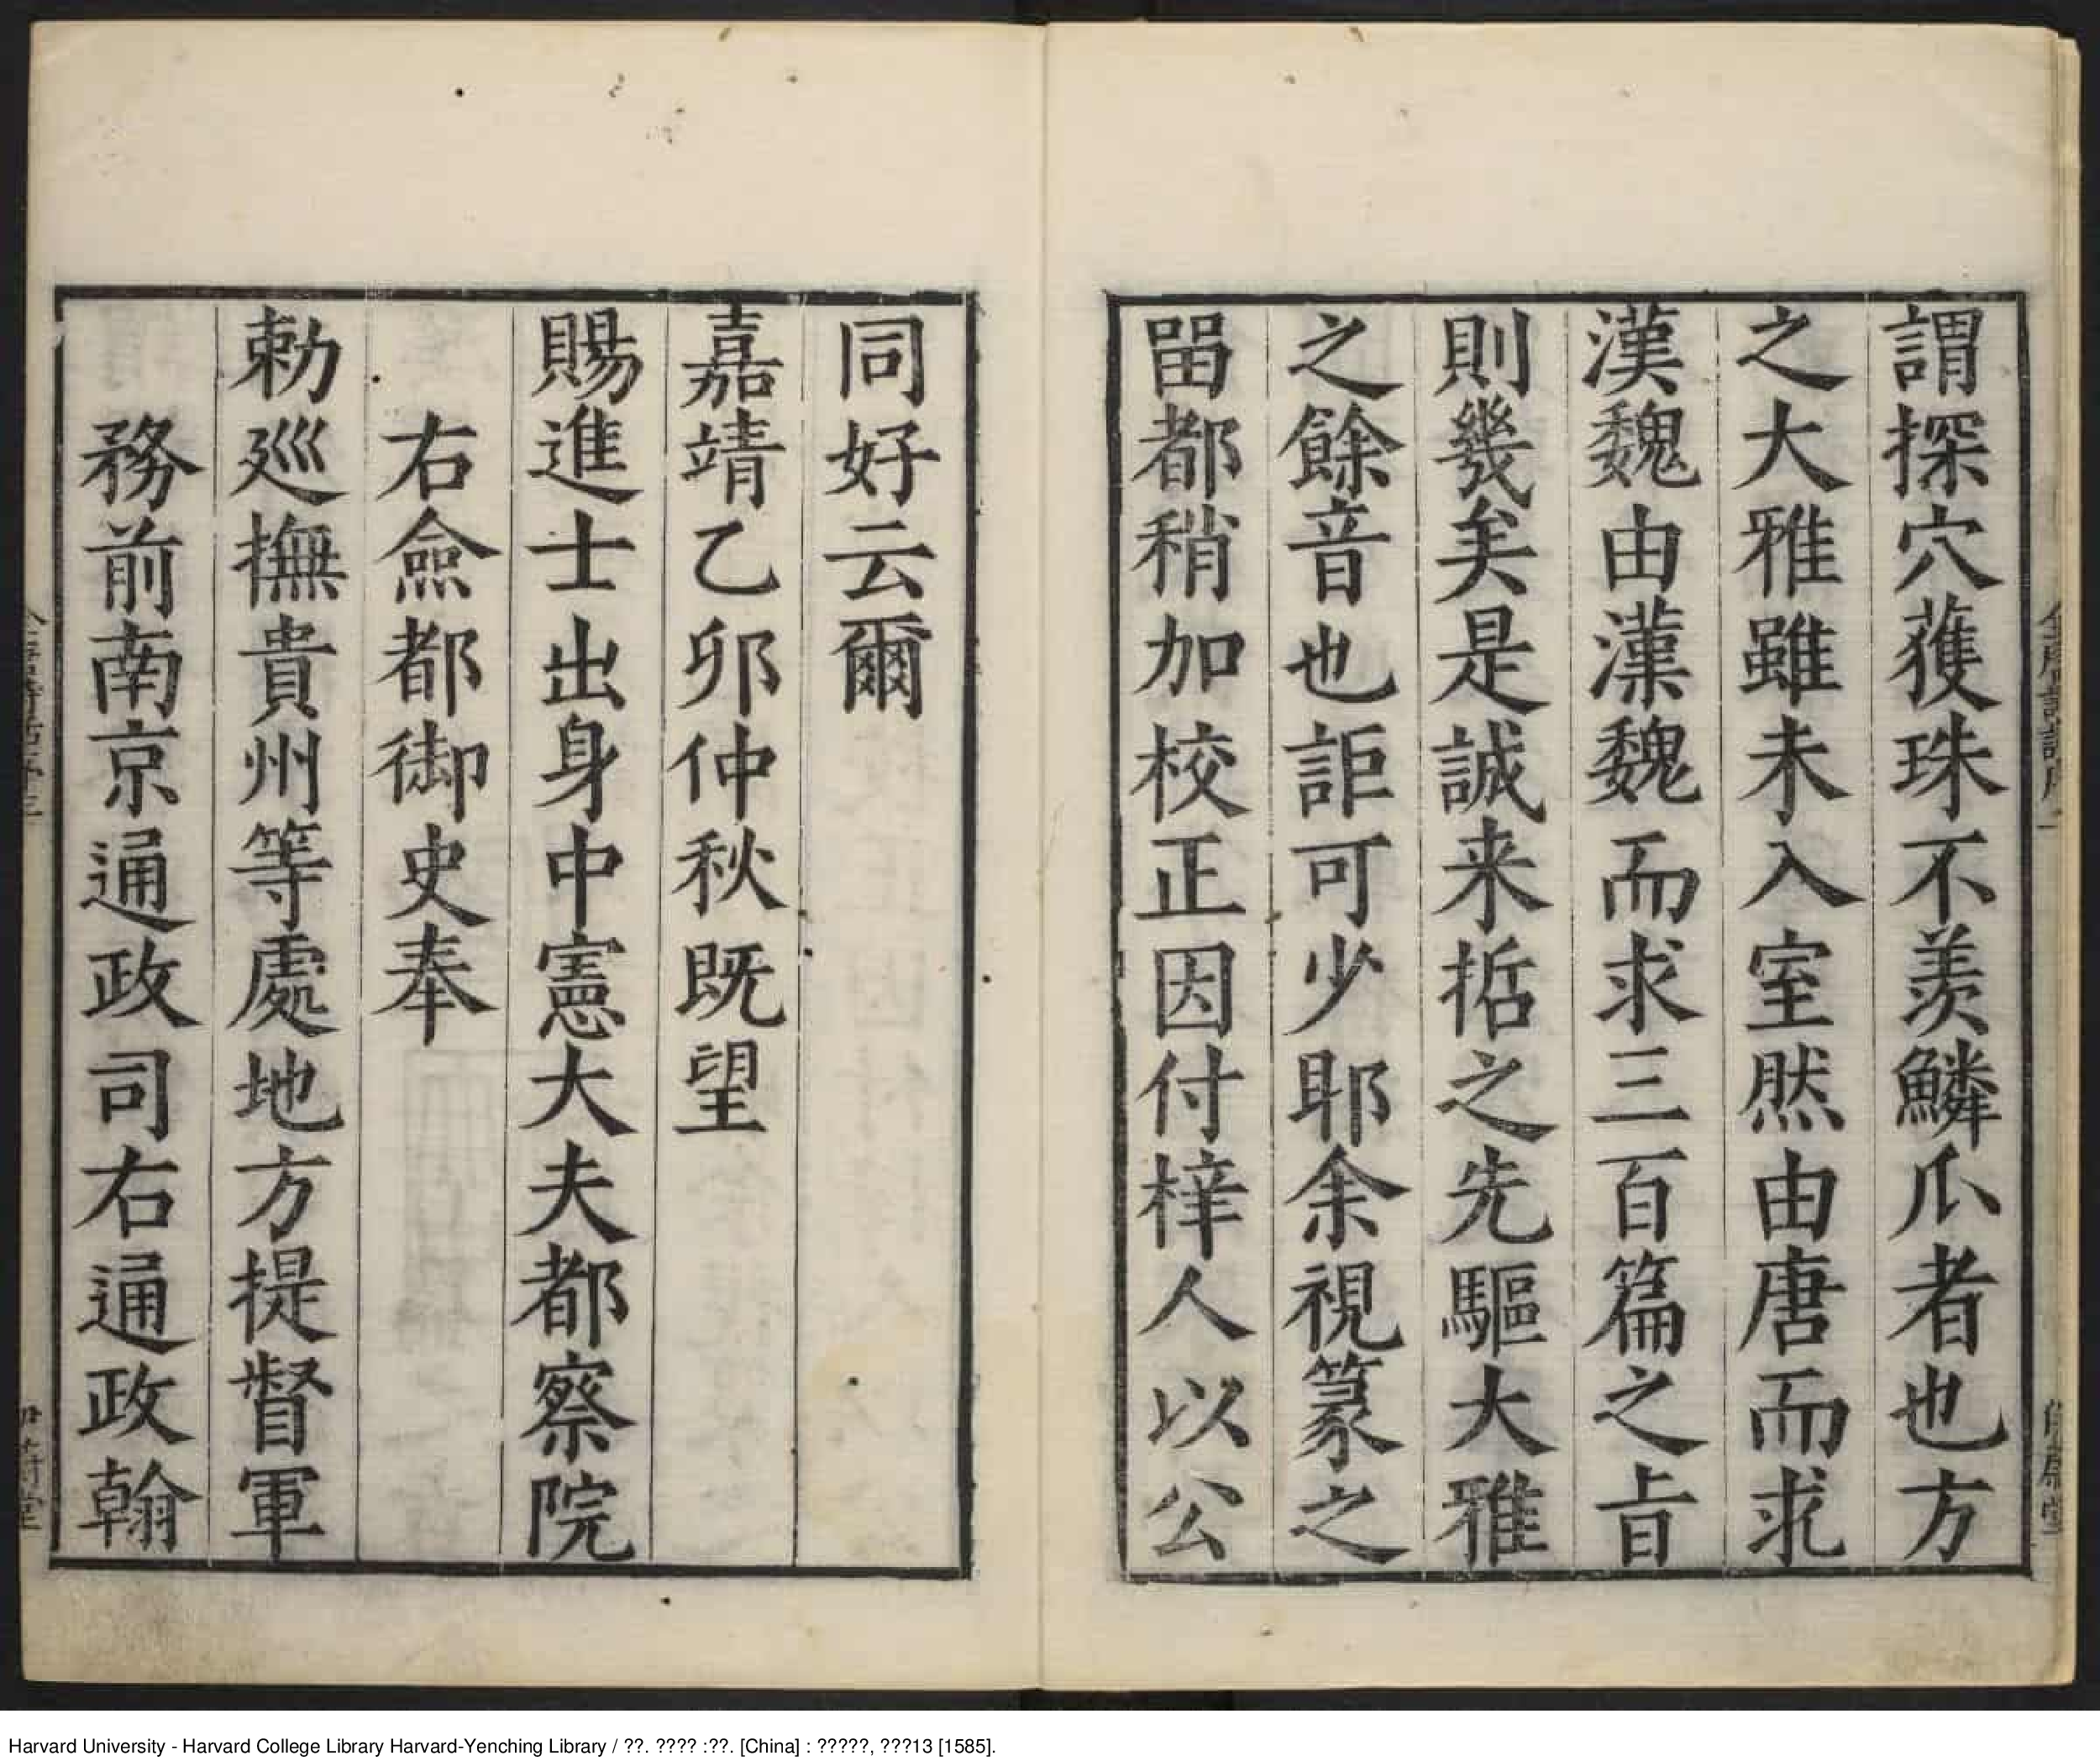 謂探穴𫉬珠不羨鱗爪者也方
之大雅雖未入室然由唐而求
漢魏由漢魏而求三百篇之旨
則幾矣是誠来哲之先驅大雅
之餘音也詎可少耶余視篆之
留都稍加校正因付梓人以公
同好云爾
嘉靖乙卯仲秋既望
賜進士出身中憲大夫都察院
右僉都御史奉
勅廵撫貴州等處地方提督軍
務前南京通政司右通政翰
Harvard University - Harvard College Library Harvard-Yenching Library / ??. ???? :??. [China] : ?????, ???13 [1585].